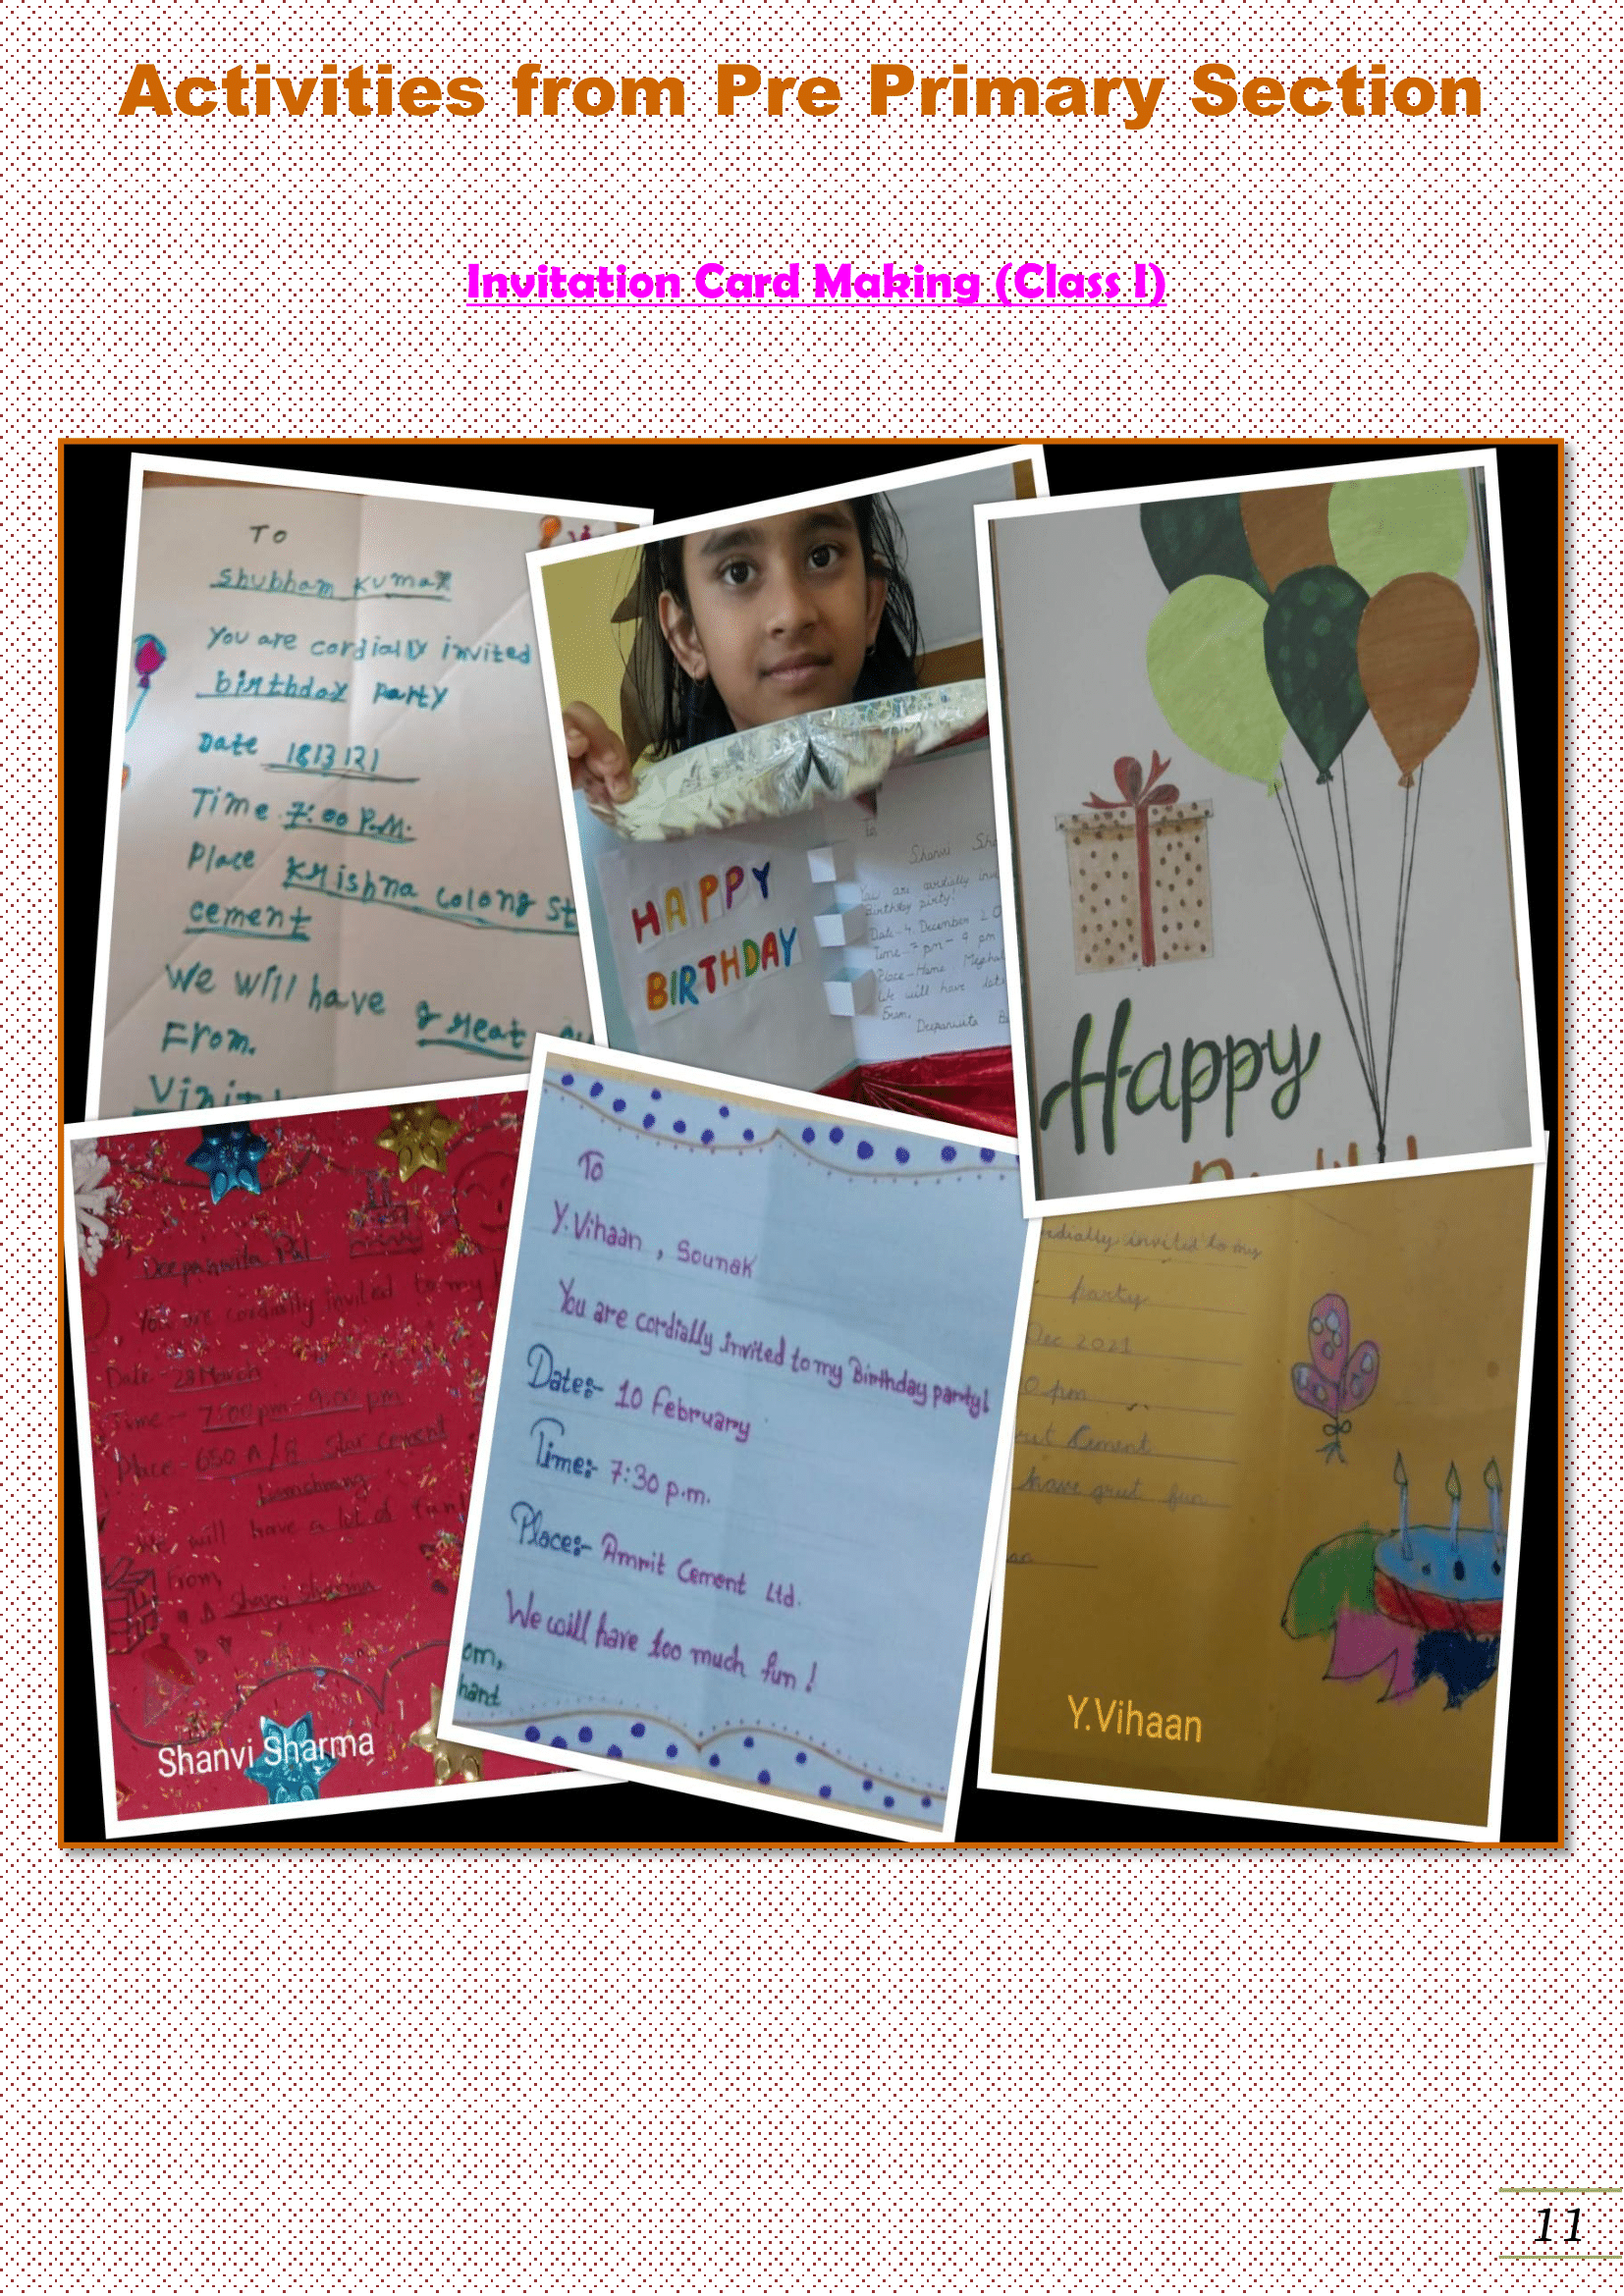 Activities from Pre Primary Section
Invitation Card Making (Class I)
To
Shubham Kumar
You are cordially invited
birthday party
Date 18/3/21
Time 7:00 P.M.
Place Krishna colony St
cement
We will have great
From.
HAPPY
BIRTHDAY
To
Shanvi Sha
You are cordially inv
Birthday party.
Date - 4 December 20
Time - 7 pm - 9 pm
Place - Home, Megha
We will have lots
From,
Deepanwita
Happy
Deepanwita Pal
You are cordially invited to my
Date - 28 March
Time - 7:00 pm - 9:00 pm
Place - 650 A/B Star cement
Lumshnong
We will have a lot of fun
From,
Shanvi Sharma
Shanvi Sharma
To
Y.Vihaan, Sounak
You are cordially invited to my Birthday party!
Date:- 10 February
Time:- 7:30 p.m.
Place:- Amrit Cement Ltd.
We will have too much fun!
om,
hand
rdially invited to my
party
Dec 2021
0 pm
Cement
have grut fun
Y.Vihaan
11